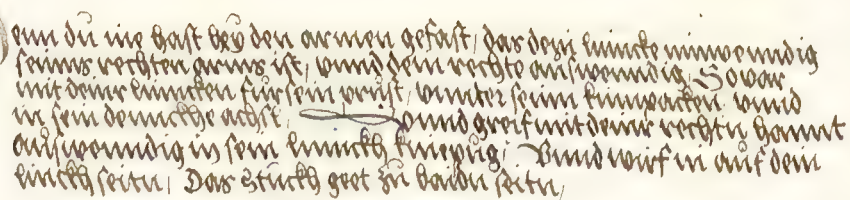 enn dũ ine hast beÿ den armen gefast, das dein linncke innwenndig
seinns rechten arms ist, vnnd dein rechte auswenndig, So var
mit deinr linncken fũr sein prũst, vnnter seinn kinnpacken vnnd
in sein dennckhe achsl, vnnd greif mit deinr rechtn hannt
aũswenndig in sein linnckh kniepũg, Vnnd wirf in aũf dein
linckh seitn, Das Stuckh geet zũ baidn seitn,